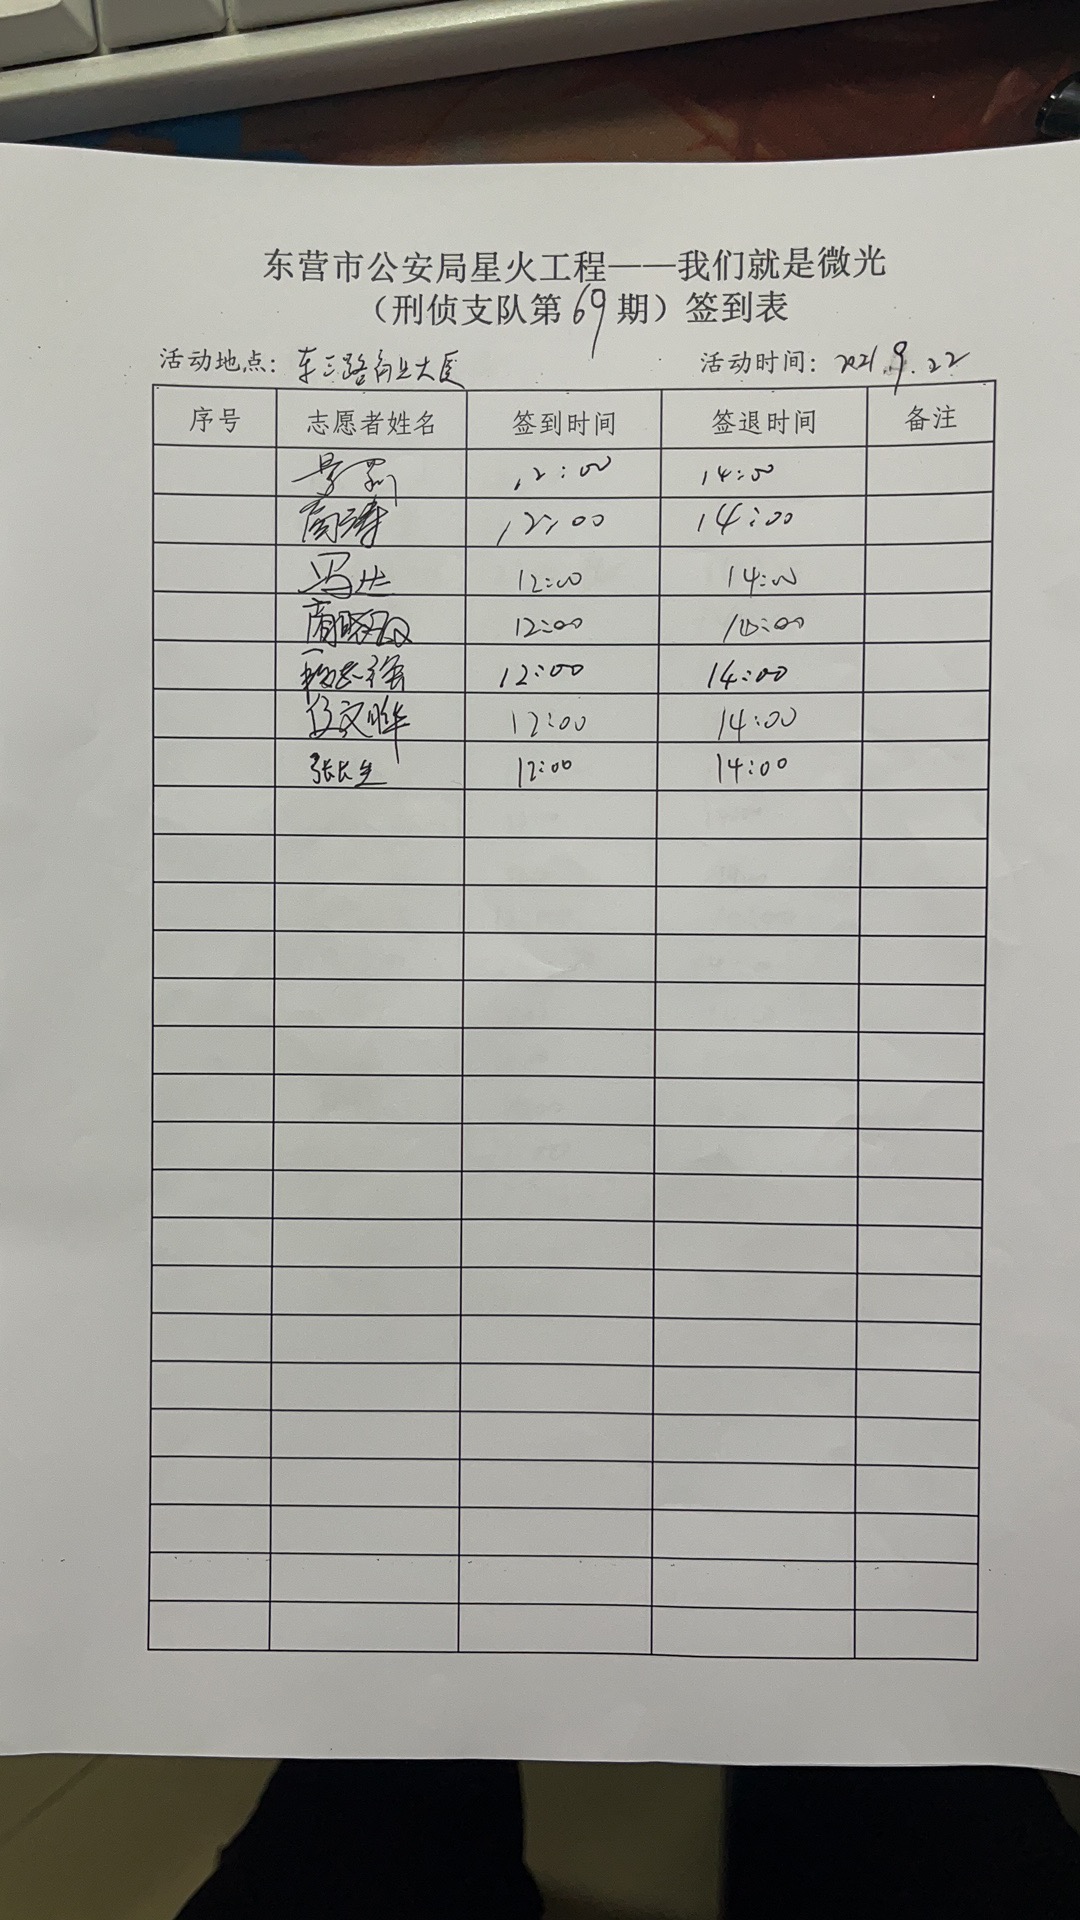 东营市公安局星火工程——我们就是微光
（刑侦支队第69期）签到表
活动地点：东三路商业大厦 活动时间：2021.9.22
序号 志愿者姓名 签到时间 签退时间 备注
12:00 14:00
商涛 12:00 14:00
冯 12:00 14:00
商 12:00 14:00
杨志强 12:00 14:00
文晔 12:00 14:00
张长生 12:00 14:00